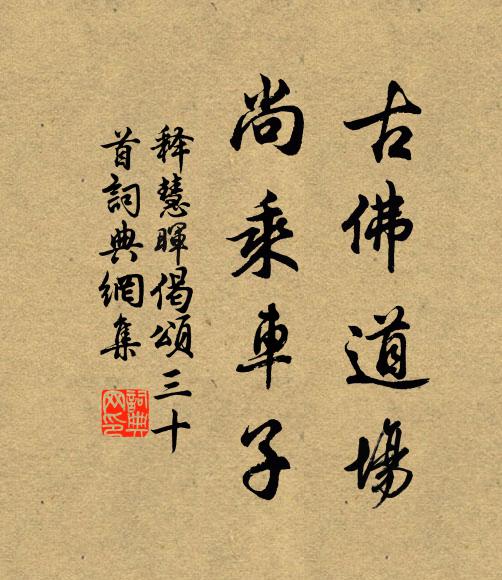 古佛道場
尚乘車子
釋慧暉偈頌三十
首詞典網集
詞典
网印